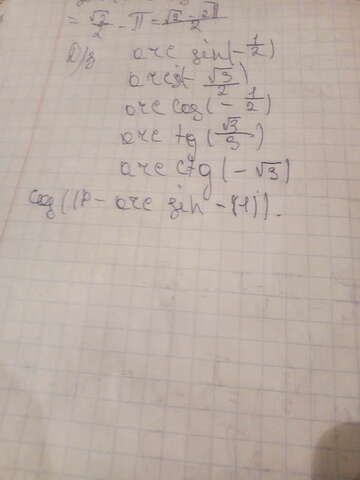 = √3/2 - π = (√3 - 2π)/2
D/з arc sin(-1/2)
arcs(- √3/2)
arc cos(- 1/2)
arc tg(√3/3)
arc ctg(-√3)
cos((π - arc sin -(1)).